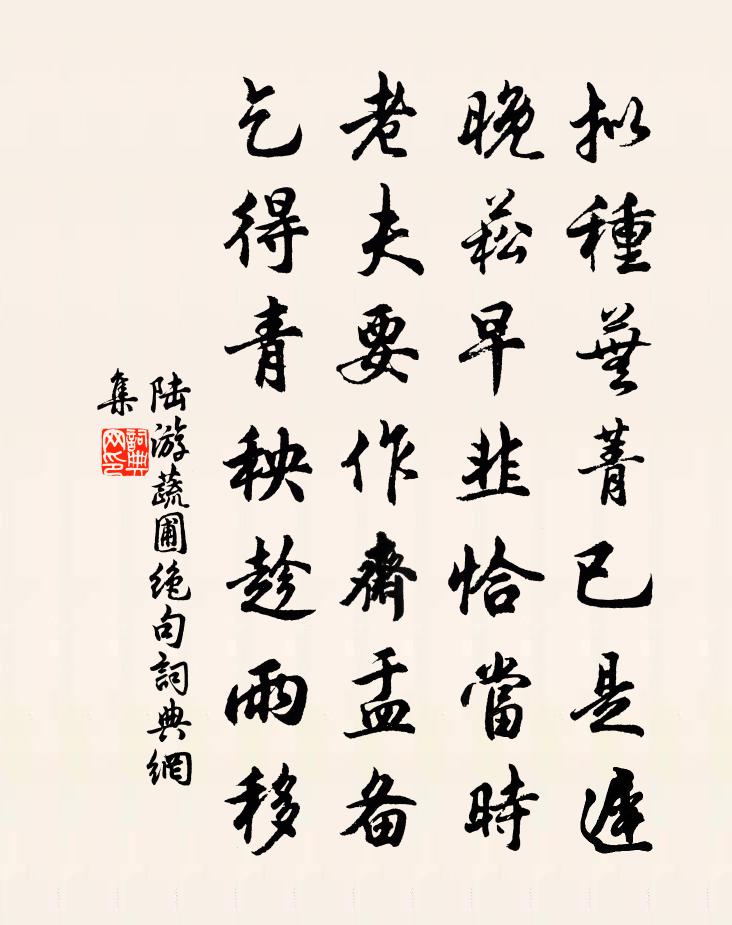 拟種蕪菁已是遲
晚菘早韭恰當時
老夫要作齋盂备
乞得青秧趁雨移
陆游蔬圃绝句詞典網
集
詞典网印